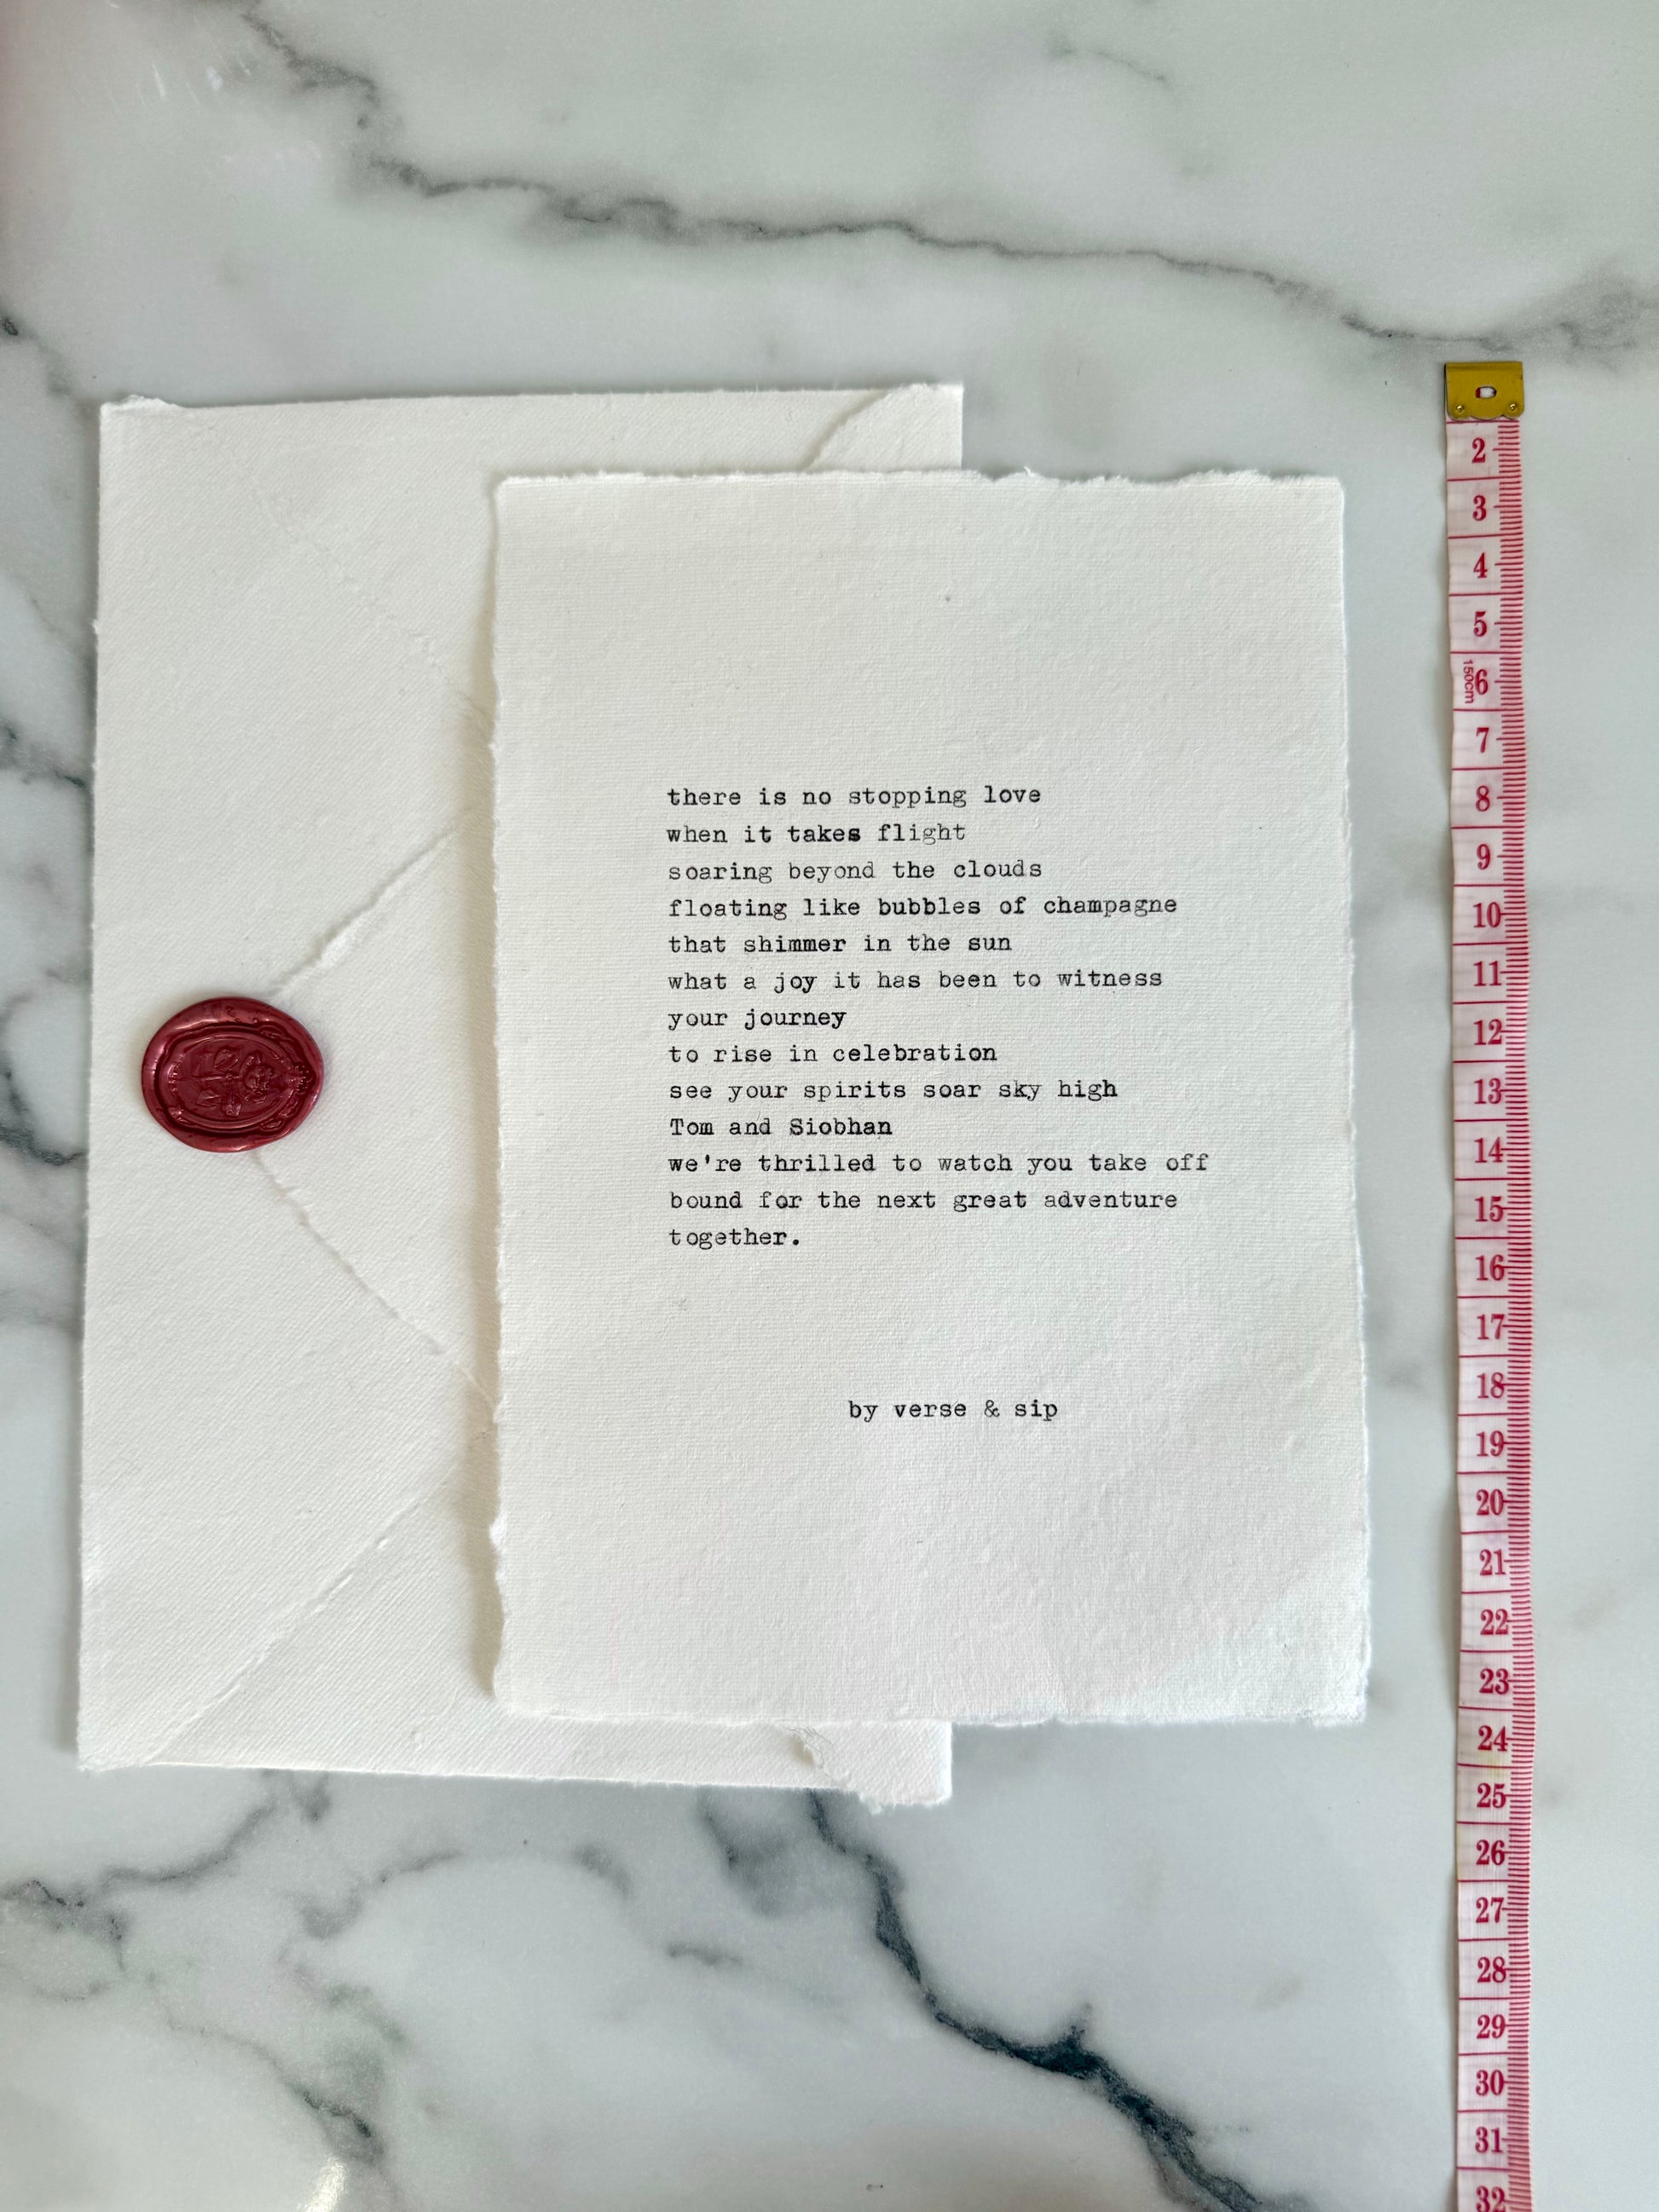 there is no stopping love
when it takes flight
soaring beyond the clouds
floating like bubbles of champagne
that shimmer in the sun
what a joy it has been to witness
your journey
to rise in celebration
see your spirits soar sky high
Tom and Siobhan
we're thrilled to watch you take off
bound for the next great adventure
together.
by verse & sip
2
3
4
5
150cm
6
7
8
9
10
11
12
13
14
15
16
17
18
19
20
21
22
23
24
25
26
27
28
29
30
31
32